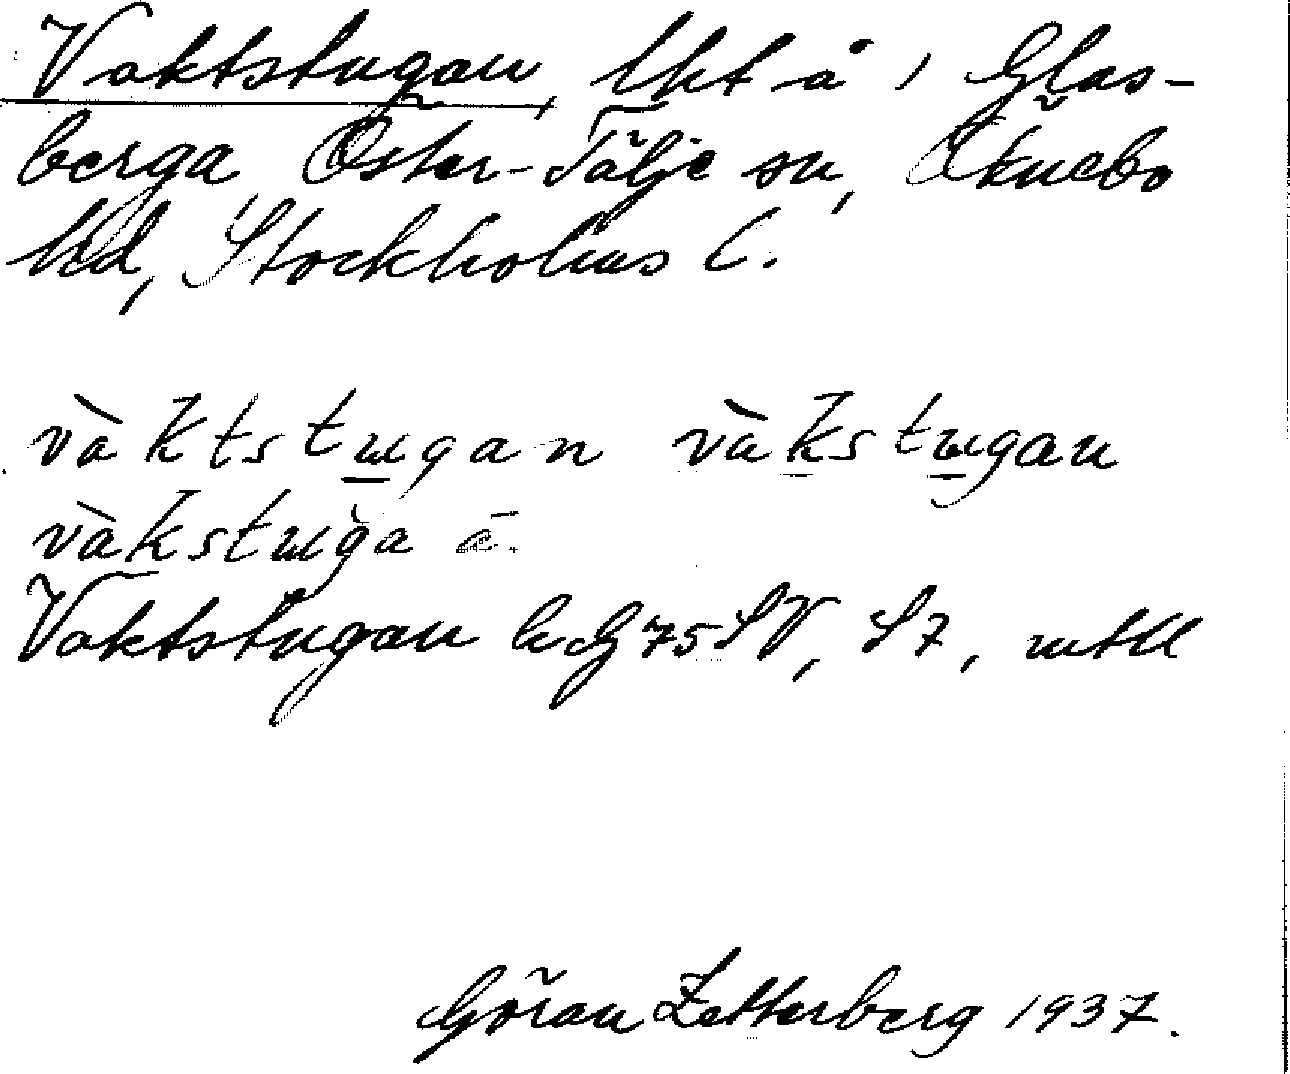 Vaktstugan, lht å 1 Glas-
berga, Öster-Tälje sn, Öknebo
hd, Stockholms l.
vàktstɯgan vàkstɯgan
vàkstɯga ä.
Vaktstugan kG 75 SV, S7, mtll
Göran Zetterberg 1937.